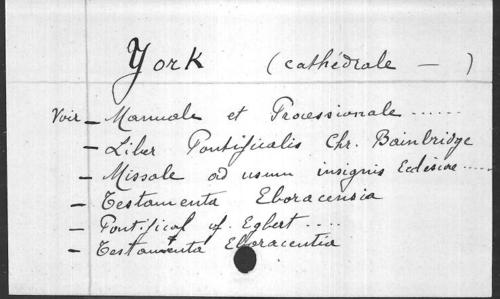 York (cathédrale — )
Voir — Manuale et Processionale ......
— Liber Pontificalis Chr. Bainbridge
— Missale ad usum insignis Ecclesiae .....
— Testamenta Eboracensia
— Pontifical of Egbert ....
— Testamenta Eboracentia